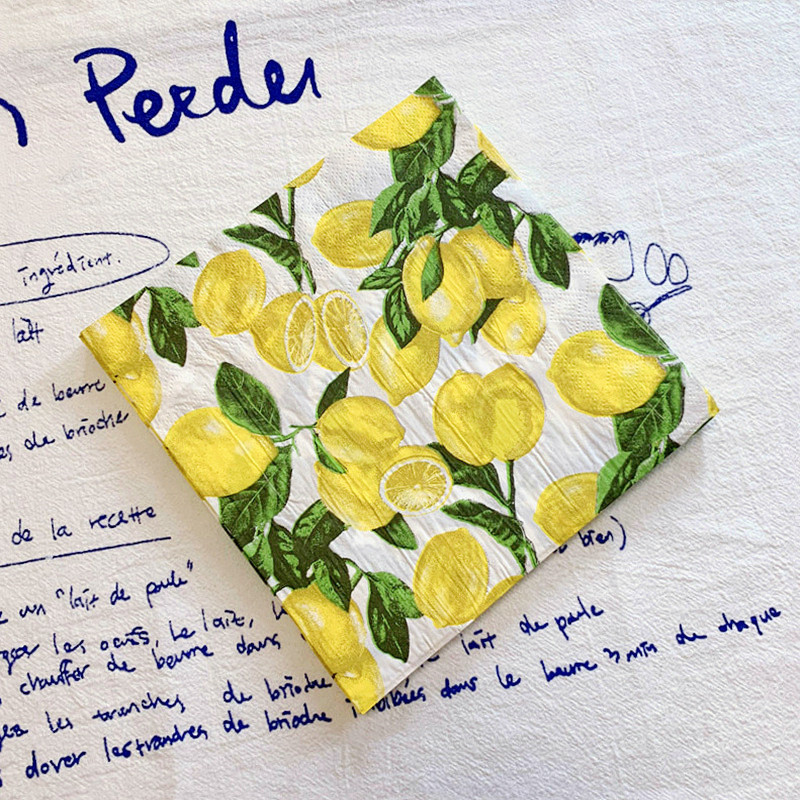 Perdu
ingrédient.
lait
de beurre
de brioche
de la recette
un "lait de poule"
bien)
les œufs, le lait,
chauffer de beurre dans lait de poule
les tranches de brioche
dorer les tranches de brioche imbibées dans le beurre 3 min de chaque